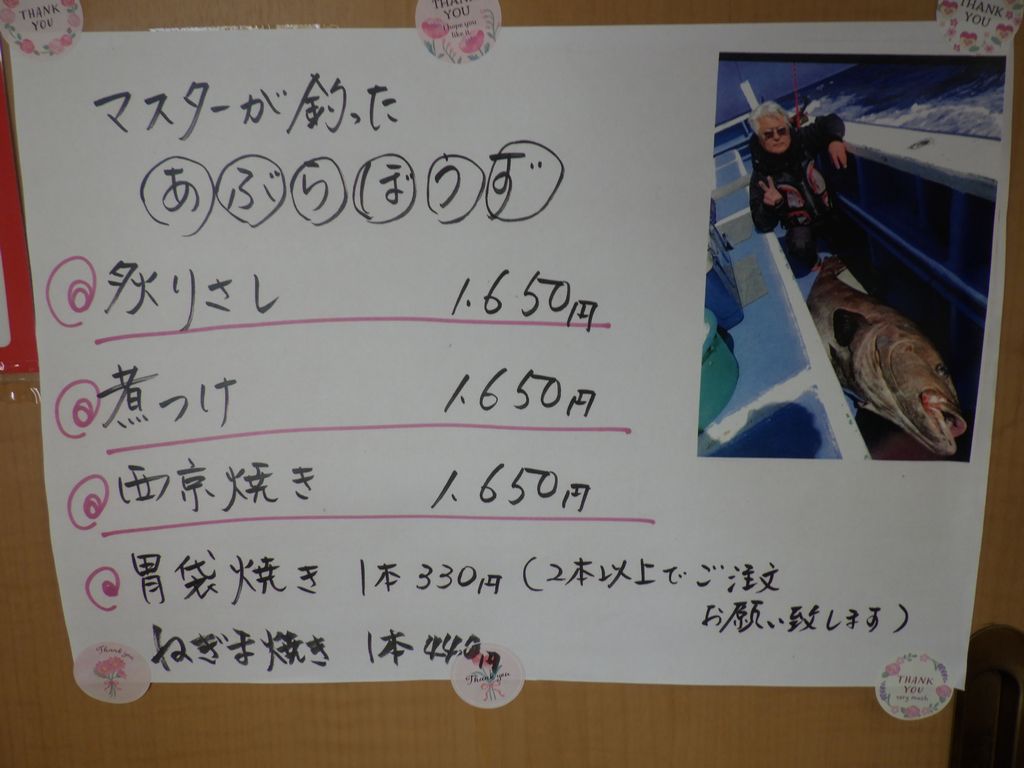 THANK YOU
THANK YOU
I hope you like it
THANK YOU
マスターが釣った
あぶらぼうず
@炙りさし 1.650円
@煮つけ 1.650円
@西京焼き 1.650円
@胃袋焼き 1本330円(2本以上でご注文
お願い致します)
ねぎま焼き 1本440円
Thank you
Thank you
THANK YOU
very much